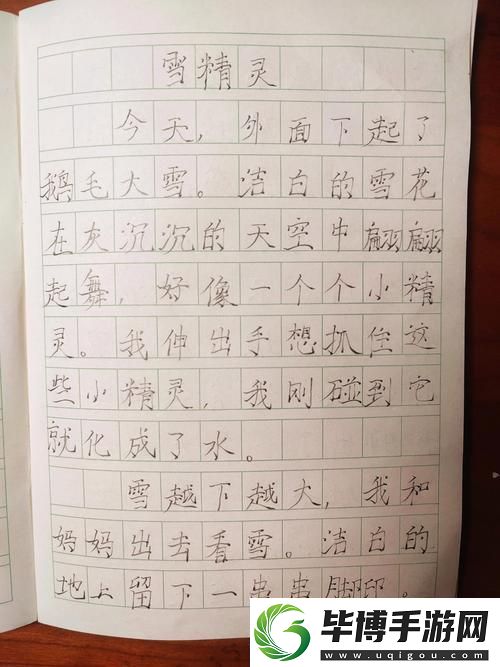 雪精灵
今天，外面下起了
鹅毛大雪。洁白的雪花
在灰沉沉的天空中翩翩
起舞，好像一个个小精
灵。我伸出手想抓住这
些小精灵，我刚碰到它
就化成了水。
雪越下越大，我和
妈妈出去看雪。洁白的
地上留下一串串脚印。
毕博手游网
www.uqigou.com